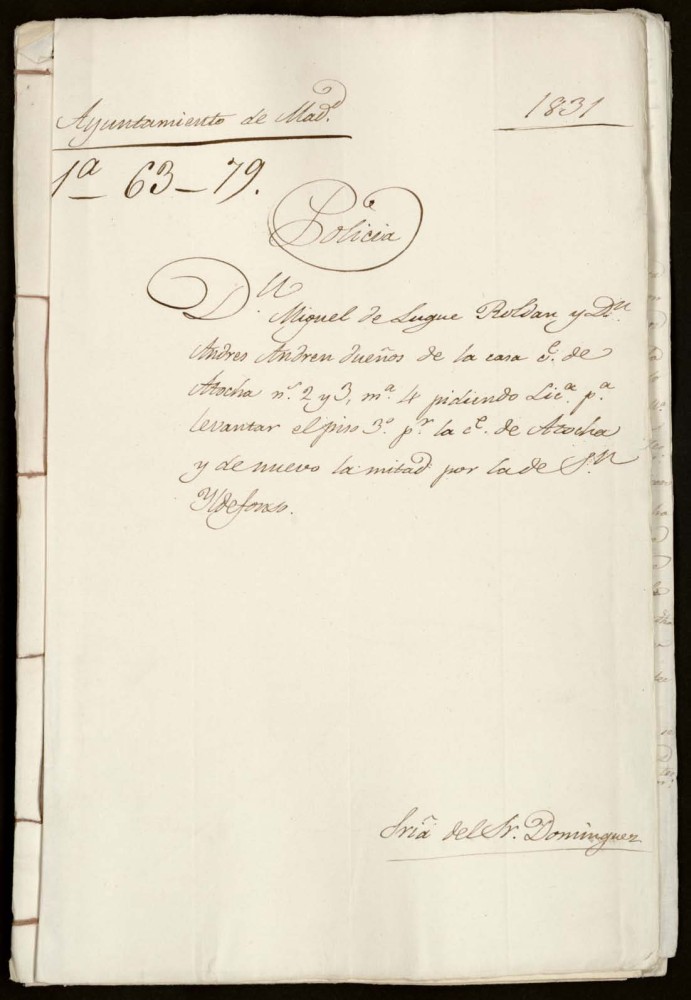 Ayuntamiento de Mad.d
1831
1a 63-79.
Policia
D.n Miguel de Luque Roldan y D.n
Andres Andren dueños de la casa c.e de
Atocha n.s 2 y 3, m.a 4 pidiendo Lic.a p.a
levantar el piso 3.o p.r la c.e de Atocha
y de nuevo la mitad por la de S.n
Yldefonso.
Sria del Sr. Dominguez